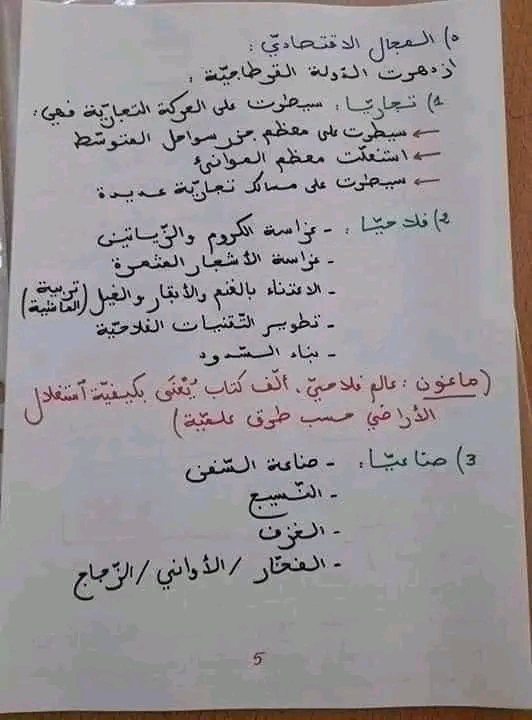 ٥) المجال الاقتصاديّ :
ازدهرت الدّولة القرطاجيّة :
1) تجاريّا : سيطرت على الحركة التجاريّة فهي :
← سيطرت على معظم جزر سواحل المتوسّط
← استغلّت معظم الموانئ
← سيطرت على مسالك تجاريّة عديدة
2) فلاحيّا : - غراسة الكروم والزّياتين
- غراسة الأشجار المثمرة
- الاعتناء بالغنم والأبقار والخيل (تربية الماشية)
- تطوير التّقنيات الفلاحيّة
- بناء السّدود
(ماغون : عالم فلاحيّ، ألّف كتاب يُعْنَى بكيفيّة استغلال
الأراضي حسب طرق علميّة)
3) صناعيّا : - صناعة السّفن
- النّسيج
- الخزف
- الفخّار / الأواني / الزّجاج
5